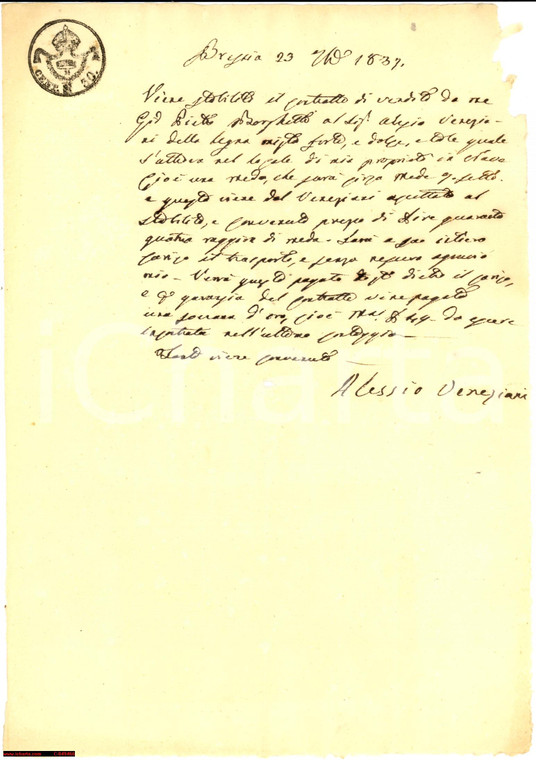 CENT. 30.
Brescia 23 1837.
Viene stabilito il contratto di vendita da me
Pietro Borghetti al Sig. Alessio Venezia-
ni della legna mista forte, e dolce, e tale quale
s'attrova nel locale di mia proprietà in
cioè una meda, che sarà circa mede
e questo viene dal Veneziani accettato al
stabilito, e convenuto prezzo di Lire quaranta
quattro ragione di meda. Sarà a suo intiero
carico il trasporto, e senza nessuno
mio - Verrà questo pagato dietro il carico,
e garanzia del contratto viene pagato
una sovrana d'oro, cioè da essere
imputata nell'ultimo
Tanto viene convenuto
Alessio Veneziani
iCharta
www.icharta.com